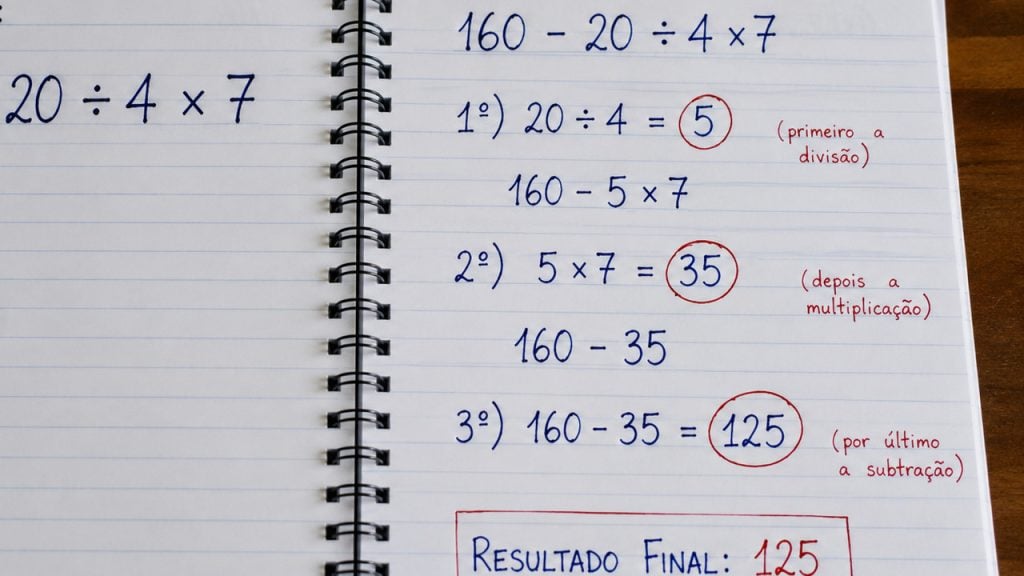 20 ÷ 4 × 7
160 - 20 ÷ 4 × 7
1º) 20 ÷ 4 = 5 (primeiro a
divisão)
160 - 5 × 7
2º) 5 × 7 = 35 (depois a
multiplicação)
160 - 35
3º) 160 - 35 = 125 (por último
a subtração)
RESULTADO FINAL: 125